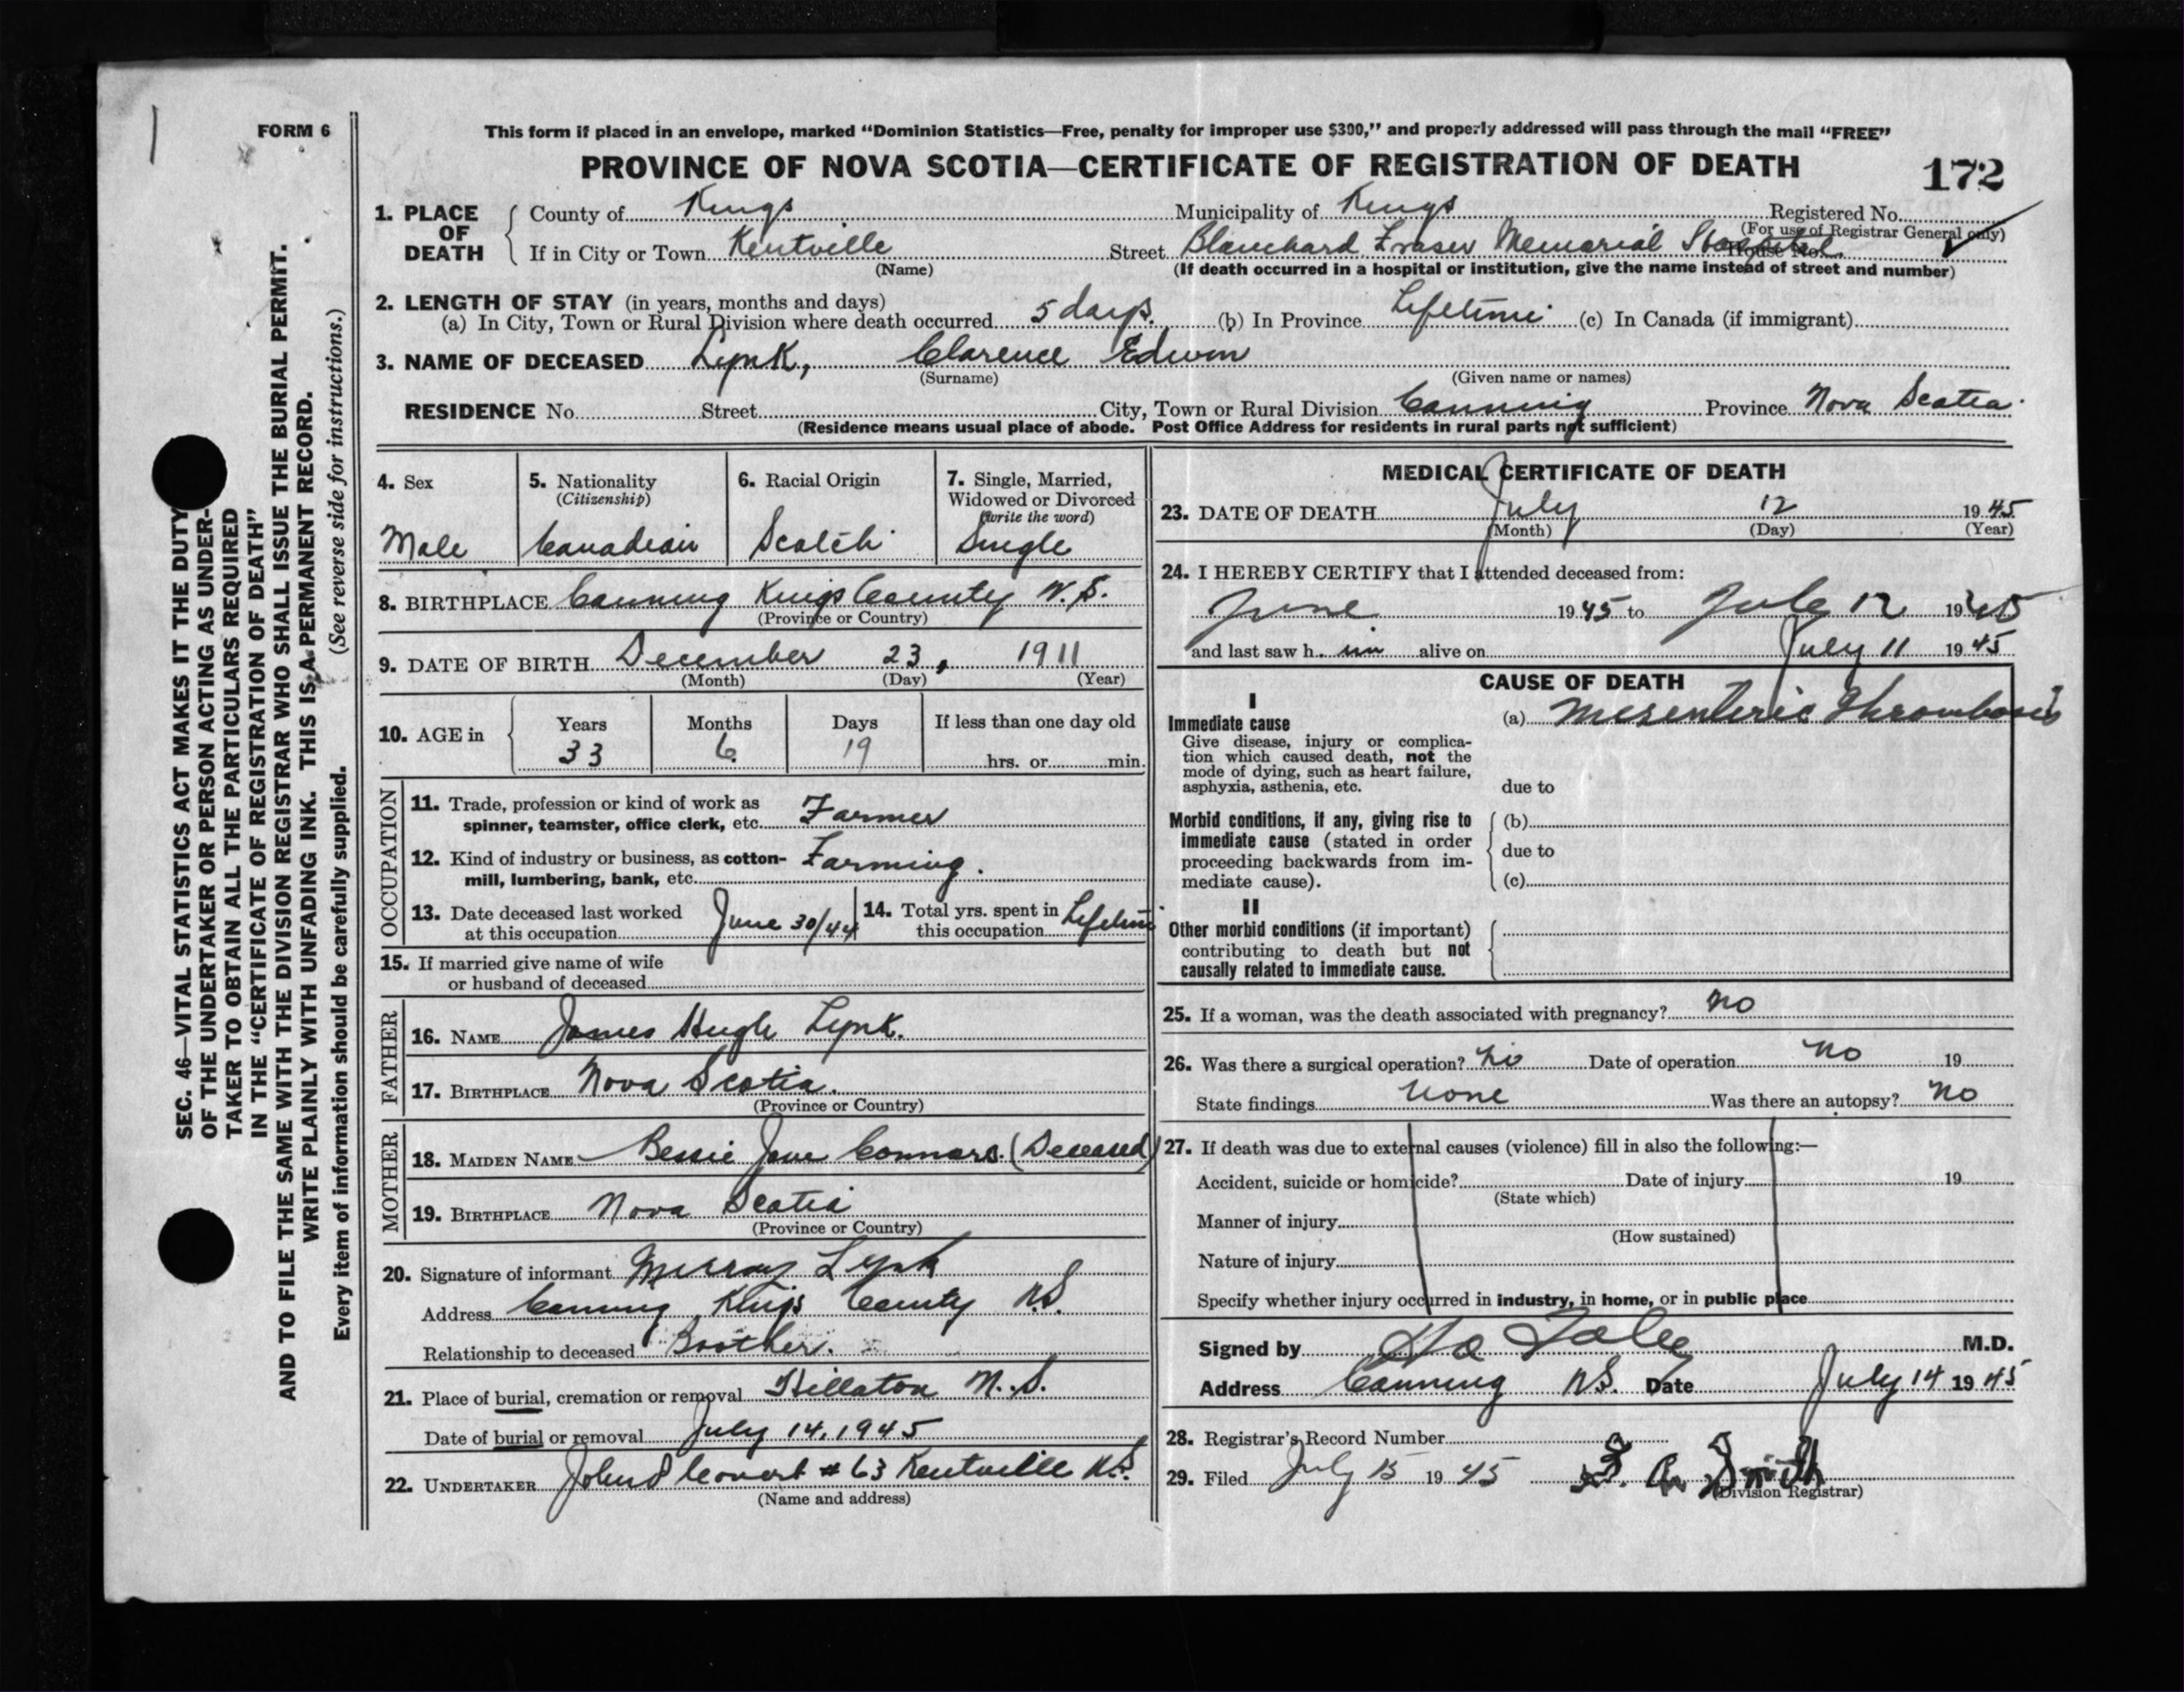 FORM 6
This form if placed in an envelope, marked "Dominion Statistics—Free, penalty for improper use $300," and properly addressed will pass through the mail "FREE"
PROVINCE OF NOVA SCOTIA—CERTIFICATE OF REGISTRATION OF DEATH
172
1. PLACE OF DEATH
County of Kings Municipality of Kings Registered No.
(For use of Registrar General only)
If in City or Town Kentville Street Blanchard Fraser Memorial Hospital. House No.
(Name) (If death occurred in a hospital or institution, give the name instead of street and number)
2. LENGTH OF STAY (in years, months and days)
(a) In City, Town or Rural Division where death occurred 5 days. (b) In Province Lifetime (c) In Canada (if immigrant)
3. NAME OF DECEASED Lynk, Clarence Edwin
(Surname) (Given name or names)
RESIDENCE No. Street City, Town or Rural Division Canning Province Nova Scotia
(Residence means usual place of abode. Post Office Address for residents in rural parts not sufficient)
4. Sex
Male
5. Nationality
(Citizenship)
Canadian
6. Racial Origin
Scotch
7. Single, Married,
Widowed or Divorced
(write the word)
Single
8. BIRTHPLACE Canning Kings County N.S.
(Province or Country)
9. DATE OF BIRTH December 23, 1911
(Month) (Day) (Year)
10. AGE in
Years Months Days If less than one day old
33 6 19 hrs. or min.
OCCUPATION
11. Trade, profession or kind of work as
spinner, teamster, office clerk, etc. Farmer
12. Kind of industry or business, as cotton-
mill, lumbering, bank, etc. Farming.
13. Date deceased last worked
at this occupation June 30/44
14. Total yrs. spent in
this occupation Lifetime
15. If married give name of wife
or husband of deceased
FATHER
16. NAME James Hugh Lynk.
17. BIRTHPLACE Nova Scotia.
(Province or Country)
MOTHER
18. MAIDEN NAME Bessie Jane Connors. (Deceased)
19. BIRTHPLACE Nova Scotia
(Province or Country)
20. Signature of informant Murray Lynk
Address Canning Kings County N.S.
Relationship to deceased Brother.
21. Place of burial, cremation or removal Hillaton N.S.
Date of burial or removal July 14, 1945
22. UNDERTAKER #63 Kentville N.S.
(Name and address)
MEDICAL CERTIFICATE OF DEATH
23. DATE OF DEATH July 12 1945
(Month) (Day) (Year)
24. I HEREBY CERTIFY that I attended deceased from:
June 1945 to July 12 1945
and last saw him alive on July 11 1945
CAUSE OF DEATH
I
Immediate cause
Give disease, injury or complica-
tion which caused death, not the
mode of dying, such as heart failure,
asphyxia, asthenia, etc.
(a) Mesenteric Thrombosis
due to
Morbid conditions, if any, giving rise to
immediate cause (stated in order
proceeding backwards from im-
mediate cause).
(b)
due to
(c)
II
Other morbid conditions (if important)
contributing to death but not
causally related to immediate cause.
25. If a woman, was the death associated with pregnancy? no
26. Was there a surgical operation? no Date of operation no 19
State findings none Was there an autopsy? no
27. If death was due to external causes (violence) fill in also the following:—
Accident, suicide or homicide? Date of injury 19
(State which)
Manner of injury
(How sustained)
Nature of injury
Specify whether injury occurred in industry, in home, or in public place
Signed by M.D.
Address Canning N.S. Date July 14 1945
28. Registrar's Record Number
29. Filed July 15 1945 Smith
(Division Registrar)
SEC. 46—VITAL STATISTICS ACT MAKES IT THE DUTY
OF THE UNDERTAKER OR PERSON ACTING AS UNDER-
TAKER TO OBTAIN ALL THE PARTICULARS REQUIRED
IN THE "CERTIFICATE OF REGISTRATION OF DEATH"
AND TO FILE THE SAME WITH THE DIVISION REGISTRAR WHO SHALL ISSUE THE BURIAL PERMIT.
WRITE PLAINLY WITH UNFADING INK. THIS IS A PERMANENT RECORD.
Every item of information should be carefully supplied. (See reverse side for instructions.)